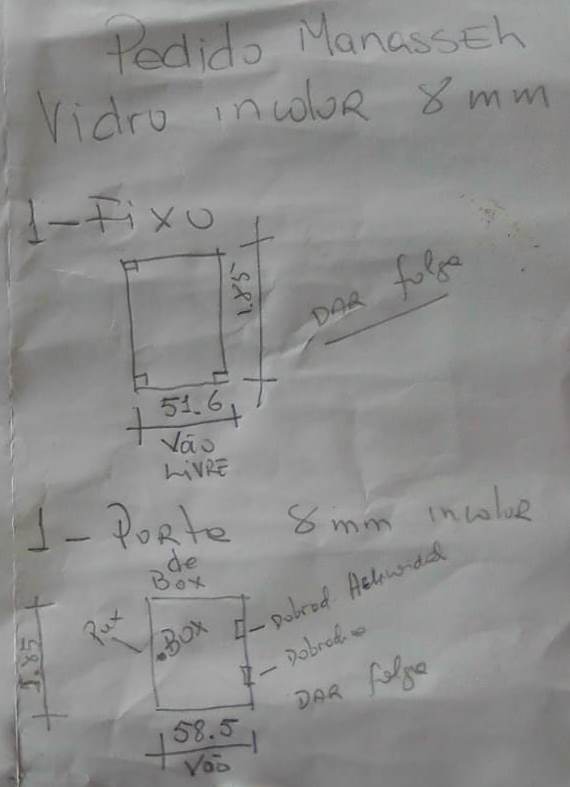 Pedido Manasseh
Vidro incolor 8 mm
1-Fixo
1.85
DAR folga
51.6
Vão
LiVRE
1-Porta 8mm incolor
de
Box
Pux
.BOX
Dobrad
Dobradi
1.85
DAR folga
58.5
Vão